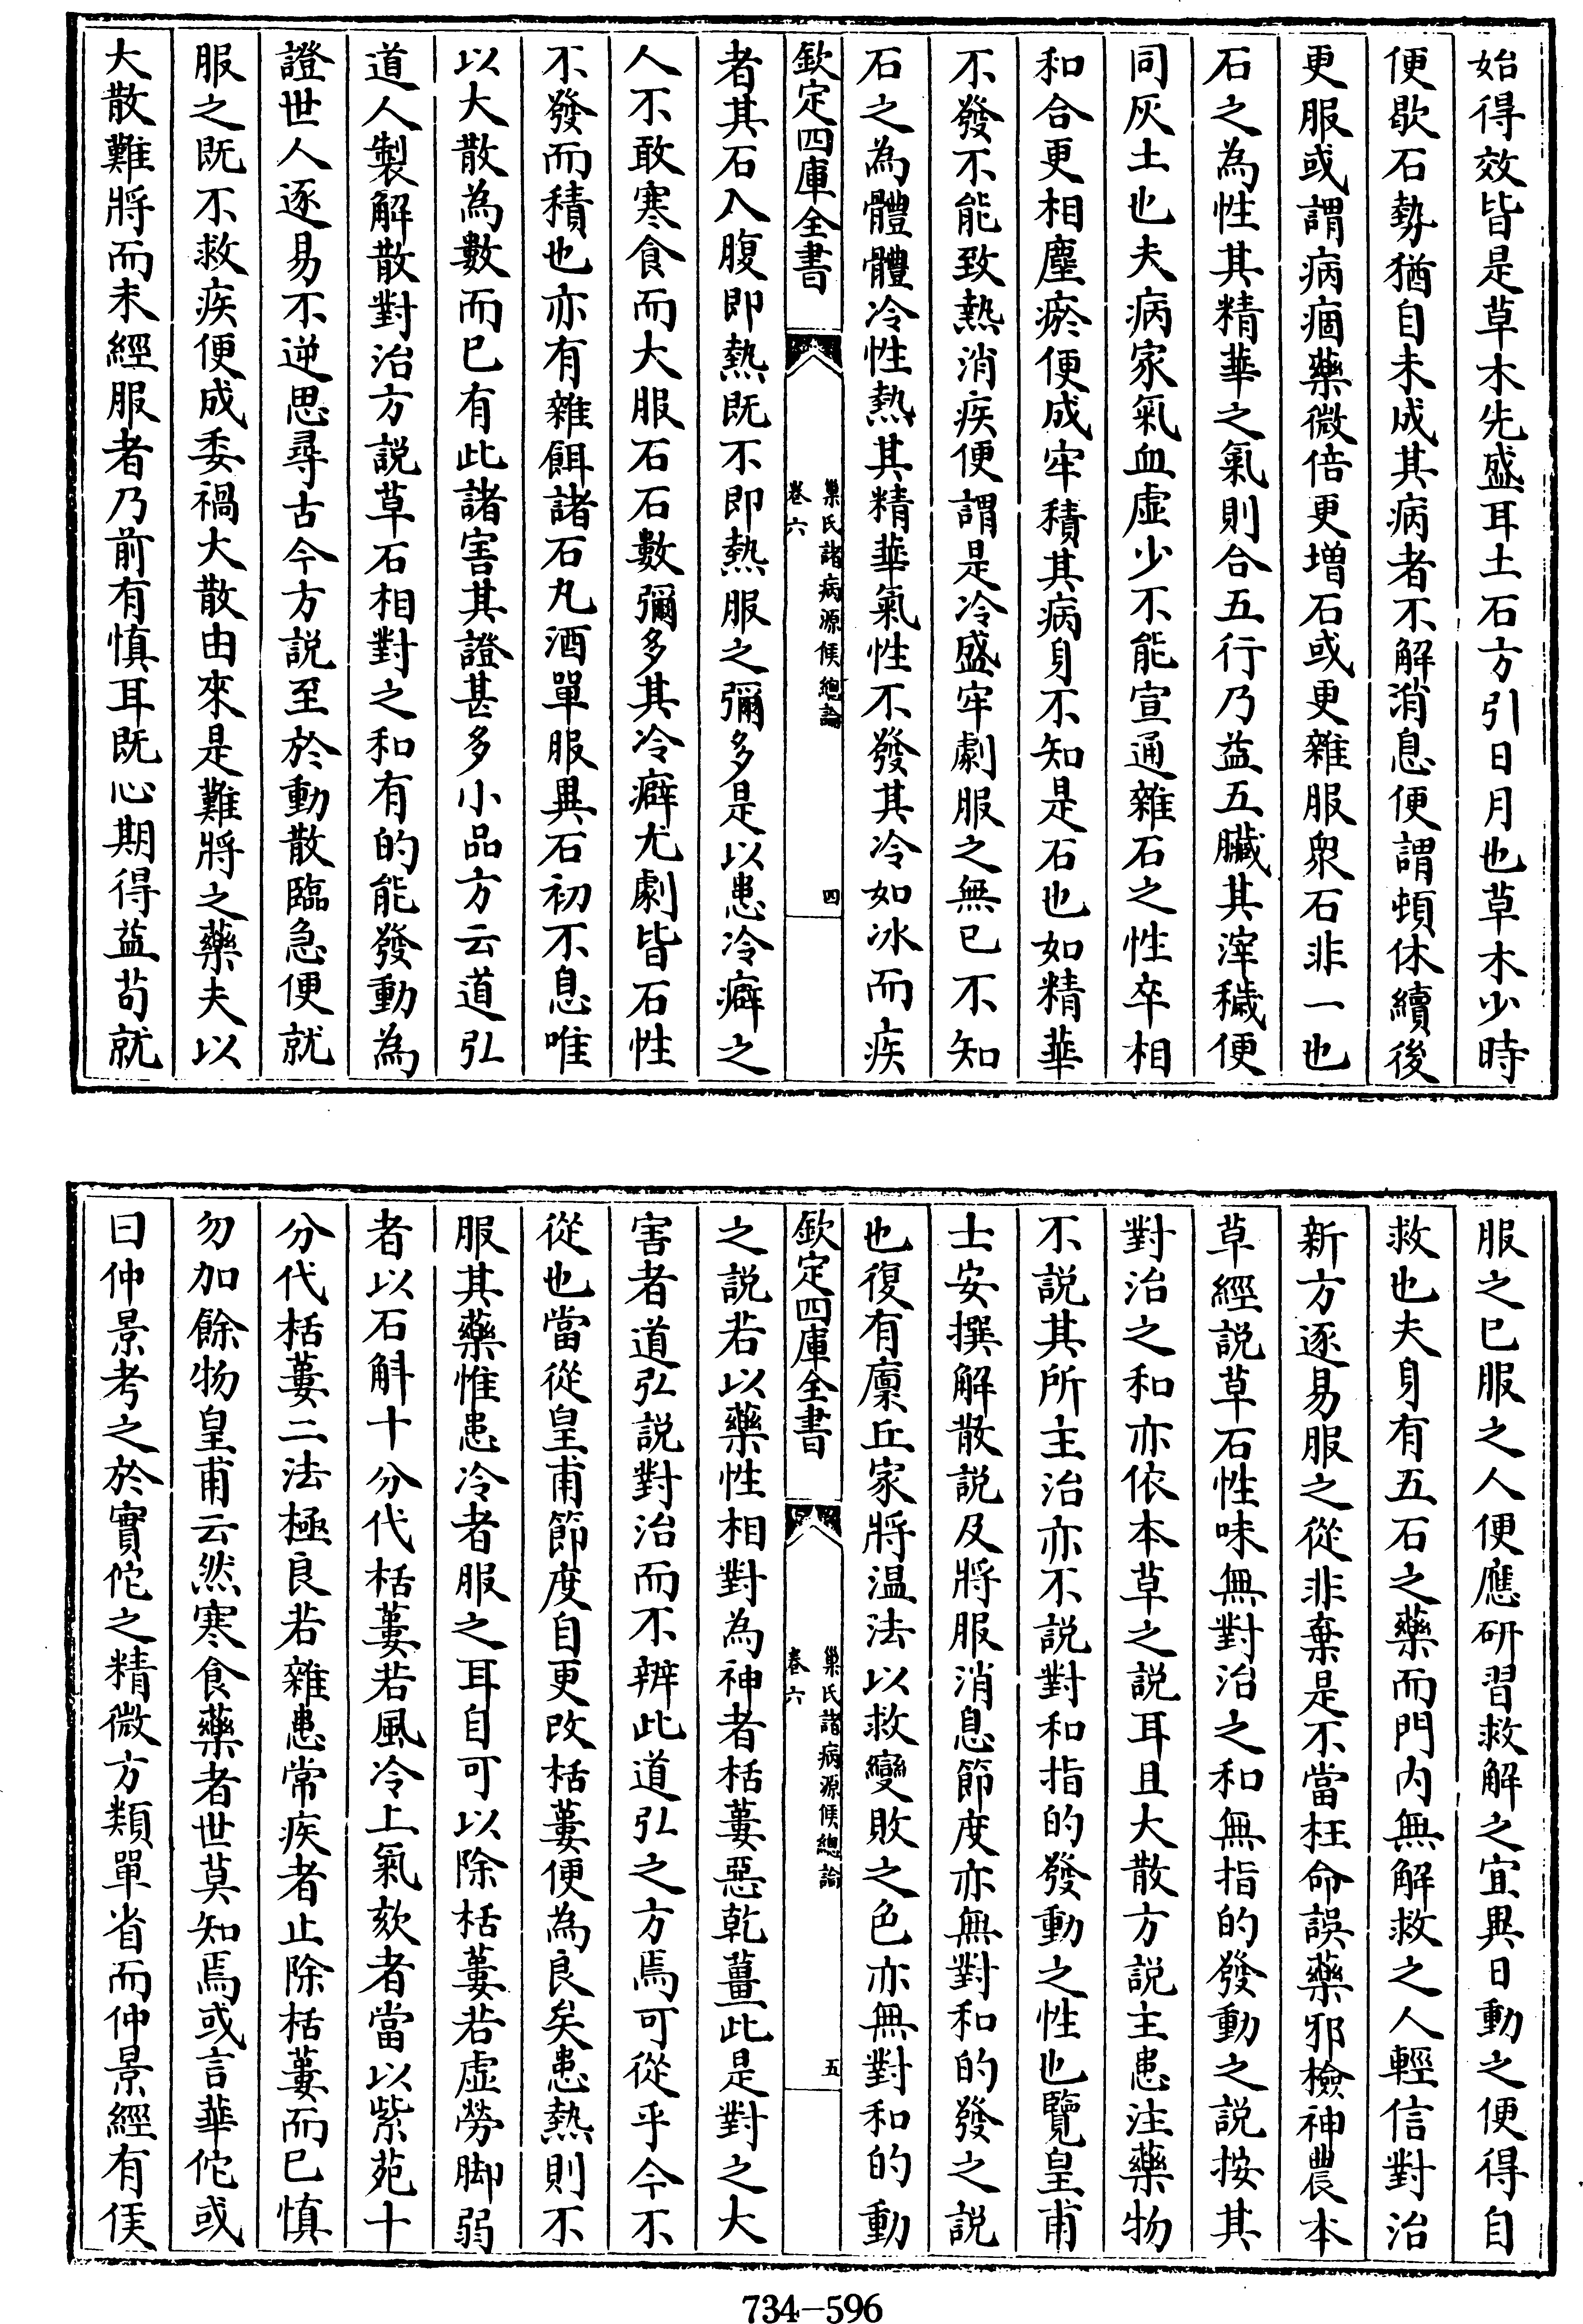 始得效皆是草木先盛耳土石方引日月也草木少時
便歇石勢猶自未成其病者不解消息便謂頓休續後
更服或謂病痼藥微倍更增石或更雜服衆石非一也
石之為性其精華之氣則合五行乃益五臟其滓穢便
同灰土也夫病家氣血虛少不能宣通雜石之性卒相
和合更相塵瘀便成牢積其病身不知是石也如精華
不發不能致熱消疾便謂是冷盛牢劇服之無已不知
石之為體體冷性熱其精華氣性不發其冷如冰而疾
欽定四庫全書
巢氏諸病源候總論
卷六
四
者其石入腹即熱既不即熱服之彌多是以患冷癖之
人不敢寒食而大服石石數彌多其冷癖尤劇皆石性
不發而積也亦有雜餌諸石丸酒單服異石初不息唯
以大散為數而已有此諸害其證甚多小品方云道弘
道人製解散對治方説草石相對之和有的能發動為
證世人逐易不逆思尋古今方説至於動散臨急便就
服之既不救疾便成委禍大散由來是難將之藥夫以
大散難將而未經服者乃前有慎耳既心期得益苟就
服之已服之人便應研習救解之宜異日動之便得自
救也夫身有五石之藥而門内無解救之人輕信對治
新方逐易服之從非棄是不當枉命誤藥邪檢神農本
草經説草石性味無對治之和無指的發動之説按其
對治之和亦依本草之説耳且大散方説主患注藥物
不説其所主治亦不説對和指的發動之性也覽皇甫
士安撰解散説及將服消息節度亦無對和的發之説
也復有廪丘家將温法以救變敗之色亦無對和的動
欽定四庫全書
巢氏諸病源候總論
卷六
五
之説若以藥性相對為神者栝蔞惡乾薑此是對之大
害者道弘説對治而不辨此道弘之方焉可從乎今不
從也當從皇甫節度自更改栝蔞便為良矣患熱則不
服其藥惟患冷者服之耳自可以除栝蔞若虛勞脚弱
者以石斛十分代栝蔞若風冷上氣欬者當以紫苑十
分代栝蔞二法極良若雜患常疾者止除栝蔞而已慎
勿加餘物皇甫云然寒食藥者世莫知焉或言華佗或
曰仲景考之於實佗之精微方類單省而仲景經有侯
734-596